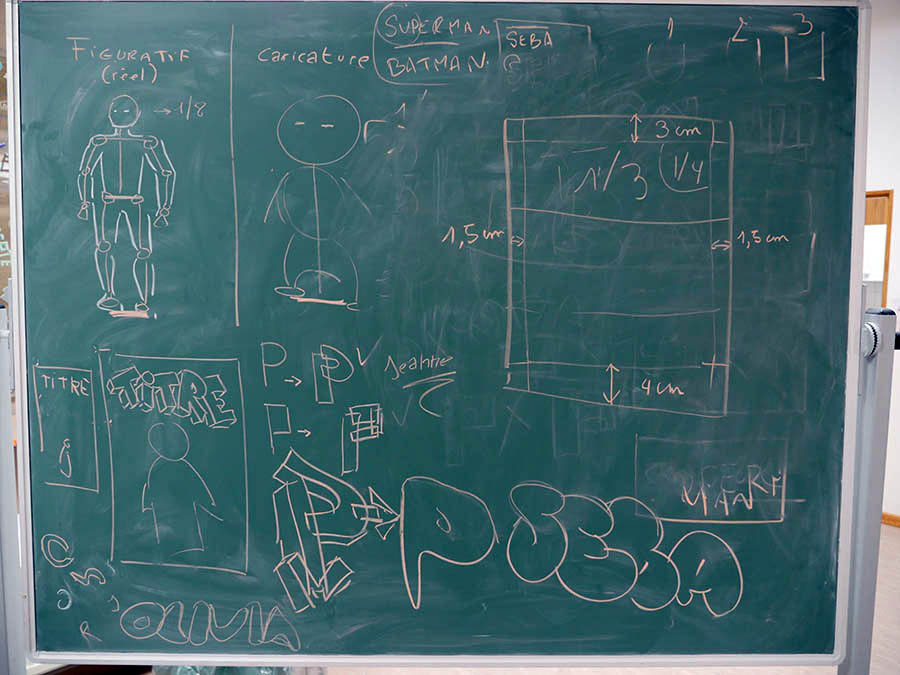 FIGURATIF
(réel)
→1/8
caricature
SUPERMAN
BATMAN
SEBA
1
2
3
3 cm
1/3
1/4
1,5 cm
1,5 cm
4 cm
TITRE
TITRE
P → P
P → P
Jeanne
P → P
SEBA